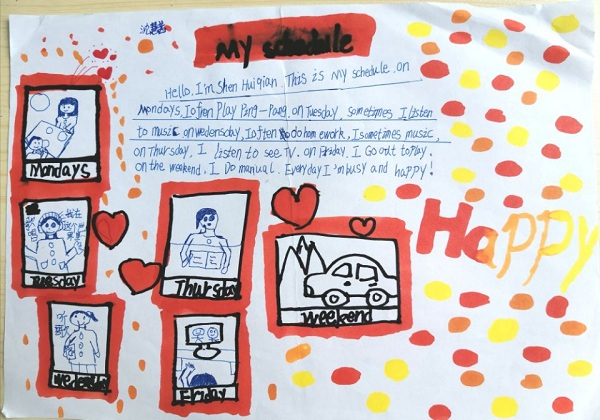 My schedule
Hello, I'm Shen Huiqian This is My schedule. on
Mondays, I often Play Ping-Pang. on Tuesday, sometimes I listen
to music on wedensday, I often do home work, I sometimes music,
on Thursday, I Listen to see TV. on Friday, I Go out to play.
on the weekend, I Do manual. Everyday I'm busy and happy!
Mondays
Tuesday
Thursday
weekend
Friday
听
歌
Happy